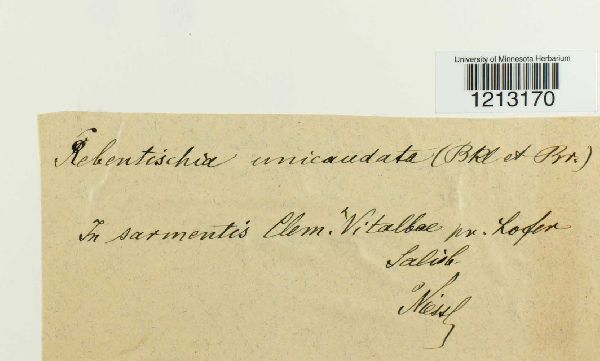 University of Minnesota Herbarium
1213170
Rebentischia unicaudata (Bkl et Br.)
In sarmentis Clem. Vitalbae pr. Lofer
Salisb.
Niessl